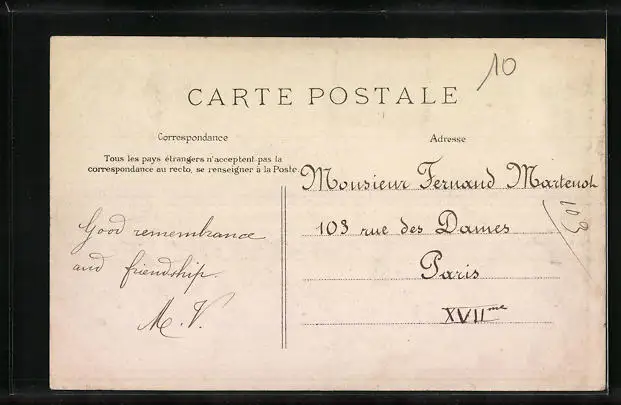 10
CARTE POSTALE
Correspondance
Adresse
Tous les pays étrangers n'acceptent pas la
correspondance au recto, se renseigner à la Poste
Monsieur Fernand Martenot
103 rue des Dames
Paris
XVII me
Good remembrance
and friendship.
M. V.